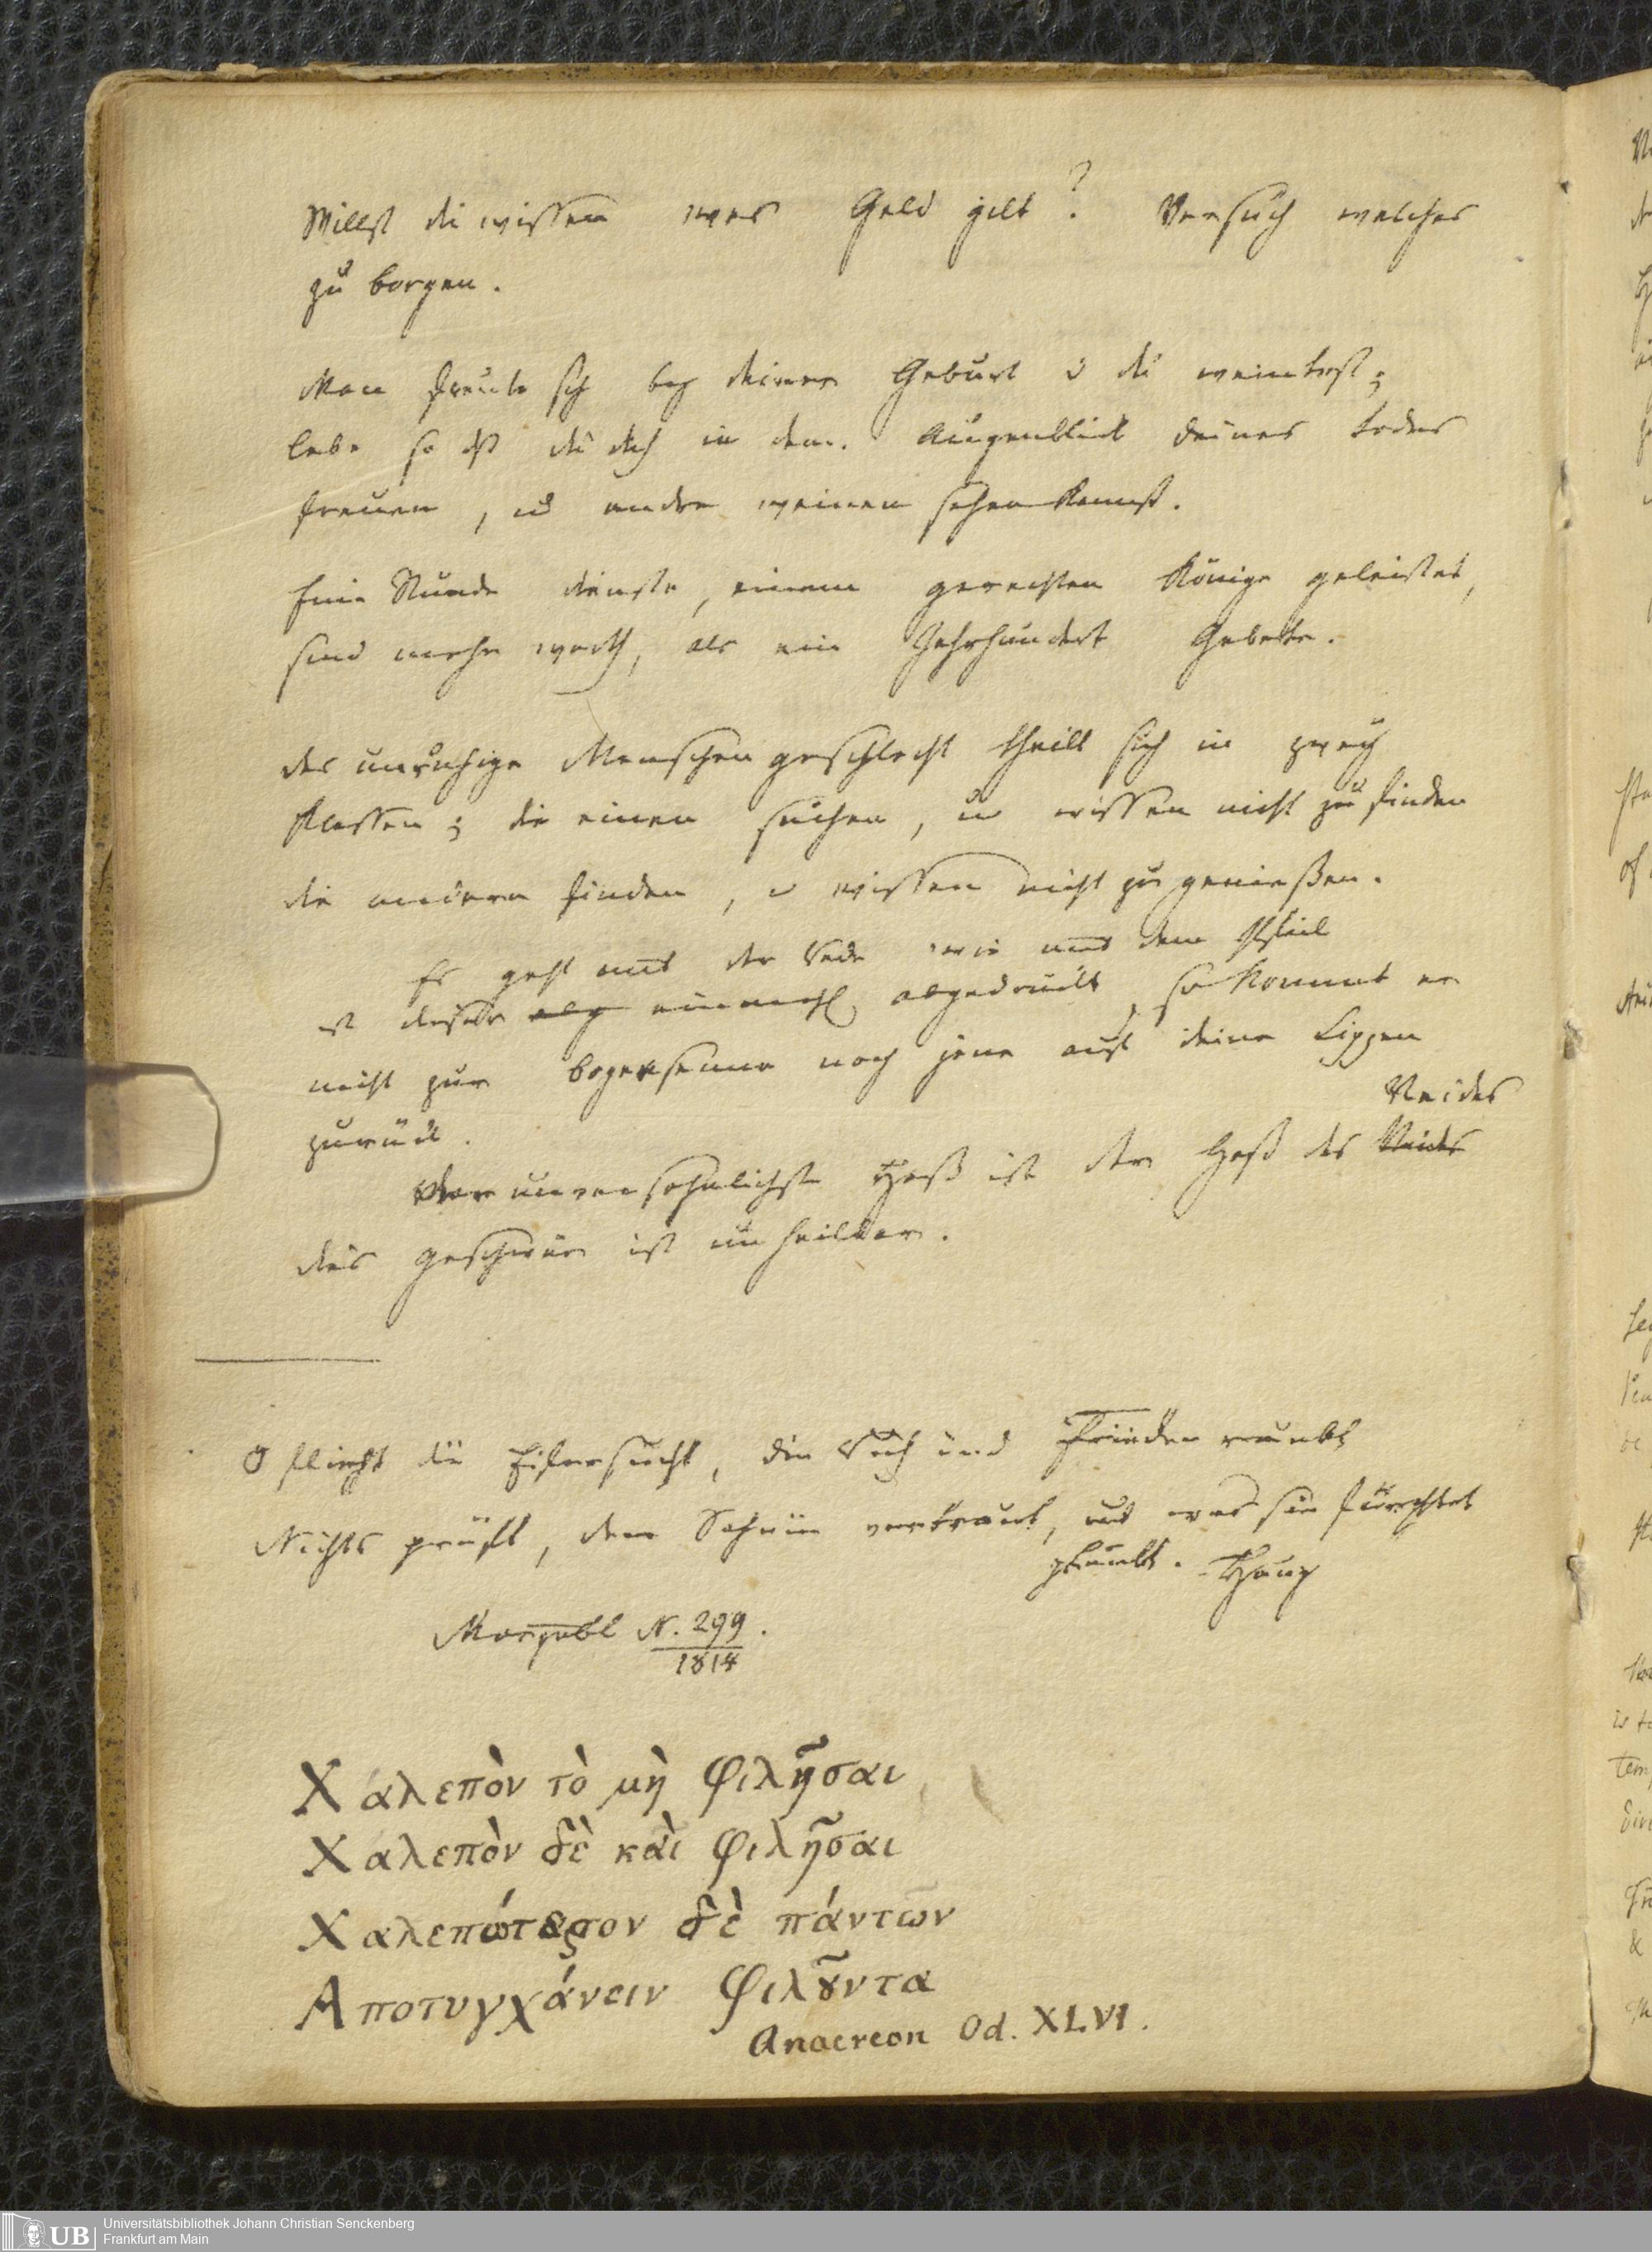 Willst du wissen was Geld gilt? Versuch welches
zu borgen.
Man freute sich bey deiner Geburt u du weintest;
lebe so dß du dich in dem Augenblick deines Todes
freuen, u andre weinen sehen kannst.
Eine Stunde dienste, einem gerechten Könige geleistet,
sind mehr werth, als ein Jahrhundert Gebette.
das unruhige Menschengeschlecht theilt sich in zwey
Klassen; die einen suchen, u wissen nicht zu finden
die andern finden, u wissen nicht zu genießen.
Es geht mit der Rede wie mit dem Pfeil
ist dieser einmahl abgedrückt, so kommt er
nicht zur bogensenne noch jene auf deine Lippen
zurück.
Neides
Der unversöhnlichste Haß ist der Haß des Neides
dies geschwür ist unheilbar.
O flieht die Eifersucht, die Ruh und Frieden raubt
Nichts prüft, dem Schein vertraut, und was sie fürchtet
glaubt. Haug
Morgebl N. 299.
1814
Χαλεπὸν τὸ μὴ φιλῆσαι
Χαλεπὸν δὲ καὶ φιλῆσαι
Χαλεπώτερον δὲ πάντων
Αποτυγχάνειν φιλοῦντα
Anacreon Od. XLVI.
Universitätsbibliothek Johann Christian Senckenberg
Frankfurt am Main
UB